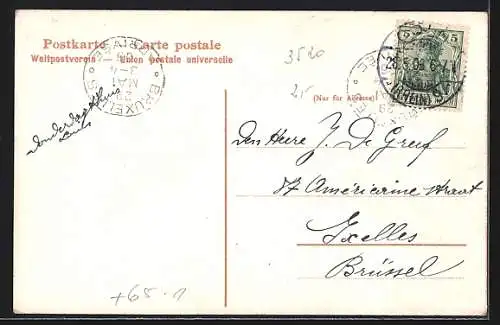 Postkarte Carte postale
Weltpostverein Union postale universelle
3520
25
(Nur für Adresse)
5 5
BRUXELLES
ARRIVÉE
3-4
MAI
Den Heere J. De Greef
87 Américaine straat
Ixelles
Brüssel
+65-1